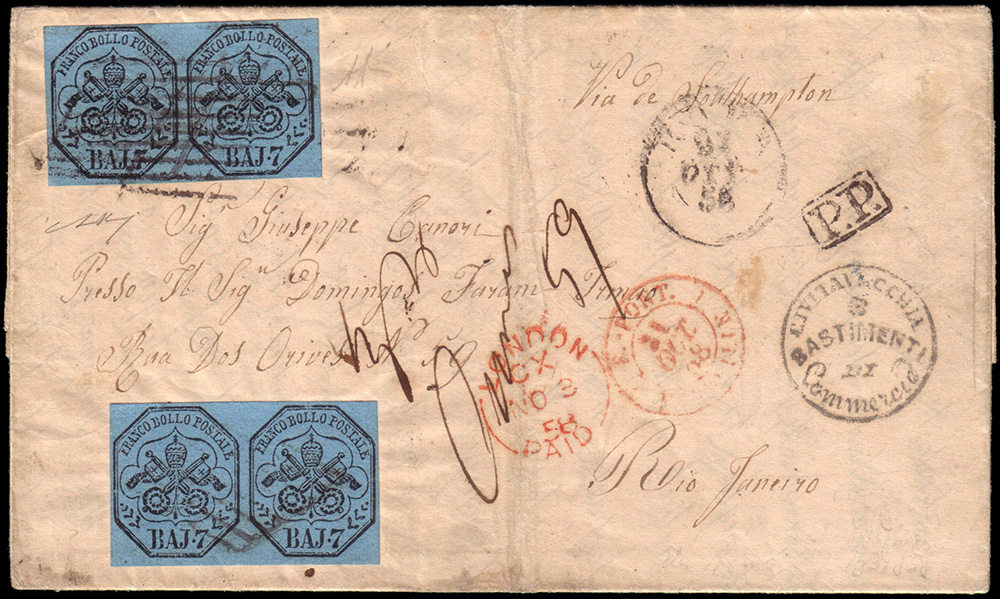 FRANCO BOLLO POSTALE
BAJ·7
FRANCO BOLLO POSTALE
BAJ·7
Via de Southampton
OTT
58
P.P.
Sig.r Giuseppe Canori
Presso Il Sig.r Domingos Farani
Rua Dos Orives
59
LONDON
CX
NO 3
58
PAID
E. PONT.
21
OCT
58
CIVITAVECCHIA
BASTIMENTI
DI
Commercio
Rio Janeiro
FRANCO BOLLO POSTALE
BAJ·7
FRANCO BOLLO POSTALE
BAJ·7